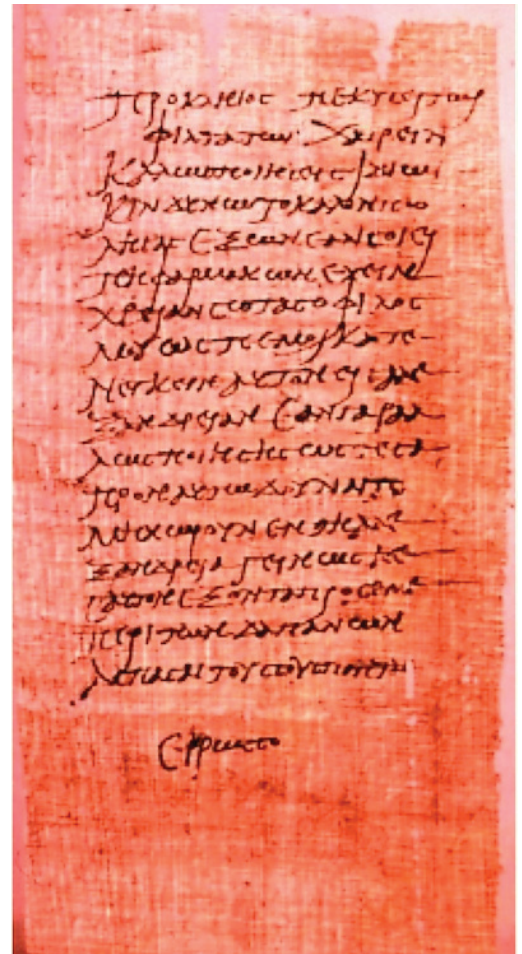 προκληιος πεκυσει τωι
φιλτατωι χαιρειν
καλως ποιησεις ιδιωι
κινδυνω το καλον πω
λησας εξ ων εαν σοι ει
πη φαρμακων εχειν
χρειαν σωτας ο φιλος
μου ωστε εμοι κατε
νεγκειν αυτον εις αλε
ξανδρειαν εαν γαρ αλ
λως ποιησης ωστε σα
προν αυτωι δουναι το
μη χωρουν εν τη αλε
ξανδρεια γεινωσκε
σαυτον εξοντα προς εμε
περι των δαπανων
ασπασαι τους σους παντας
ερρωσο